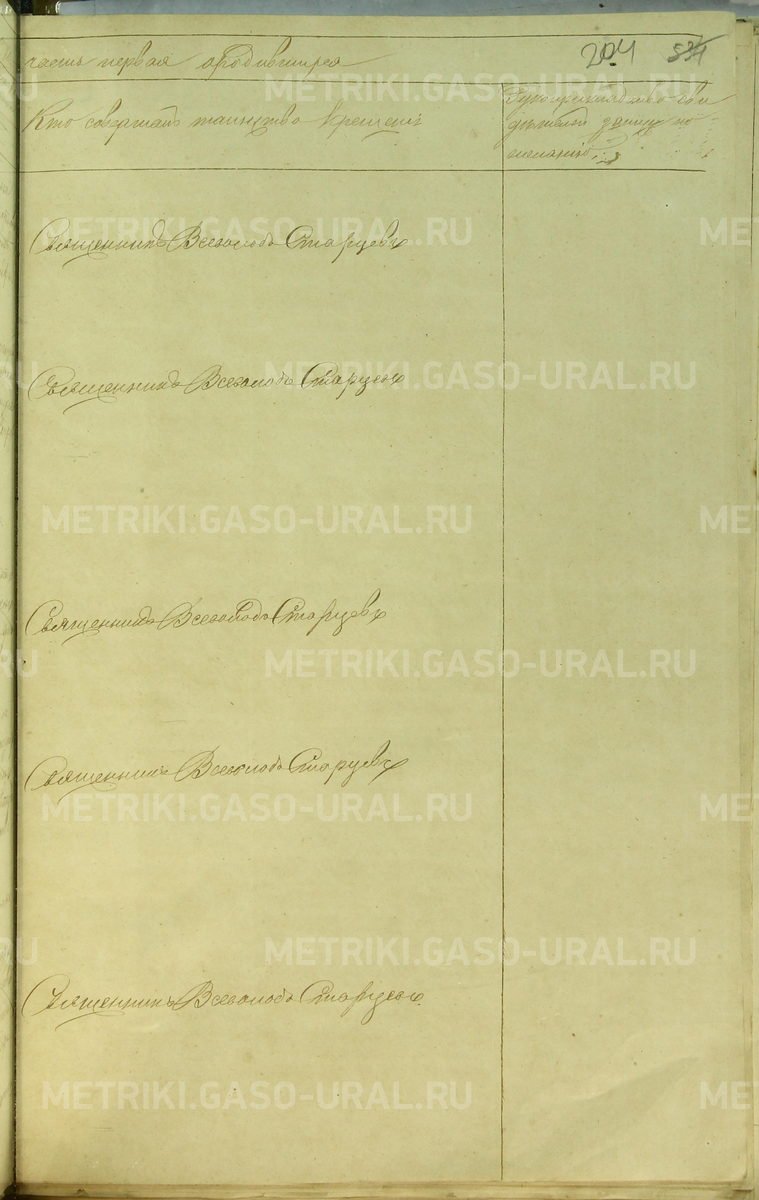 часть первая о родившихся
204
534
Кто совершалъ таинство крещенія
Рукоприкладство сви
дѣтелей записи по
желанію
Священникъ Всеволодъ Старцевъ
Священникъ Всеволодъ Старцевъ
Священникъ Всеволодъ Старцевъ
Священникъ Всеволодъ Старцевъ
Священникъ Всеволодъ Старцевъ
METRIKI.GASO-URAL.RU